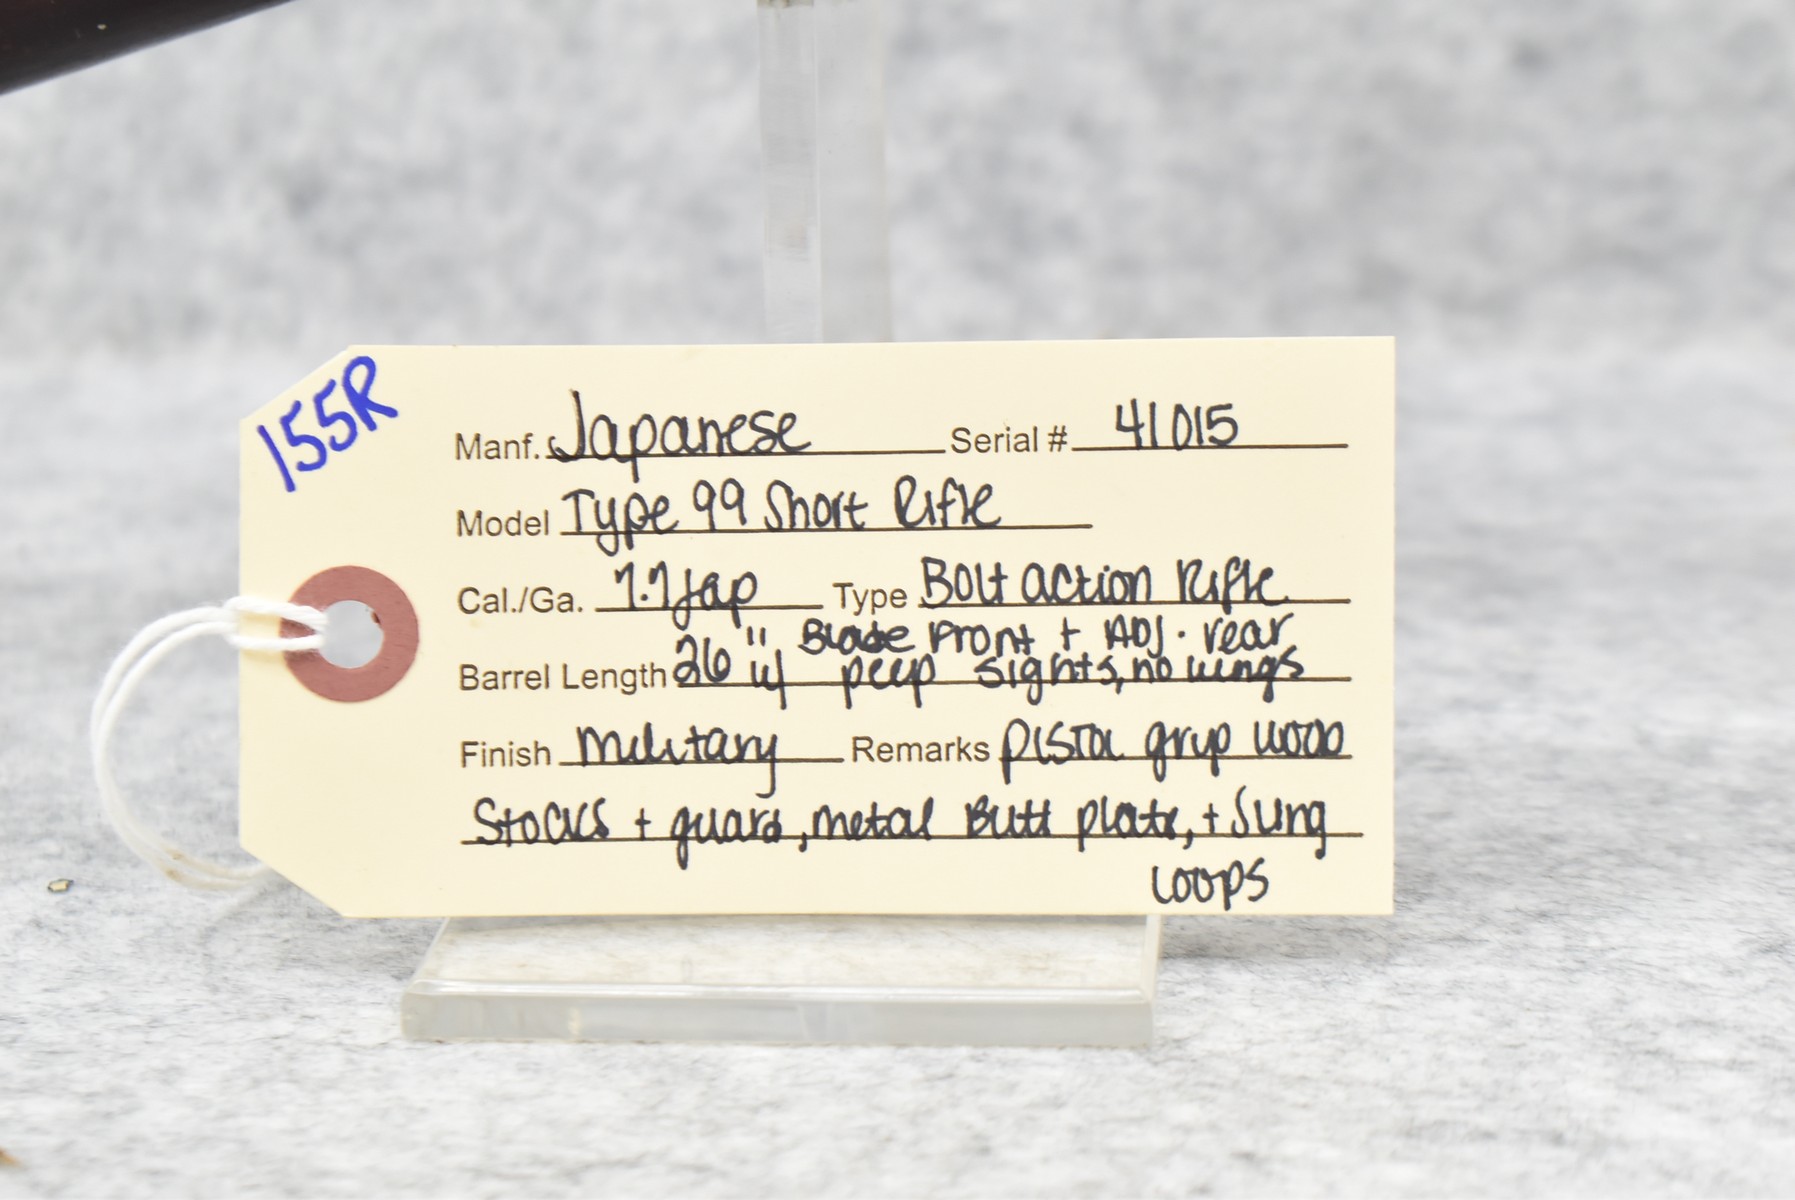 155R
Manf. Japanese Serial # 41015
Model Type 99 Short Rifle
Cal./Ga. 7.7 Jap Type Bolt action Rifle
Blade Front + ADJ. rear
Barrel Length 26" w/ peep sights, no wings
Finish military Remarks pistol grip wood
Stocks + guard, metal Butt plate, + Sling
loops